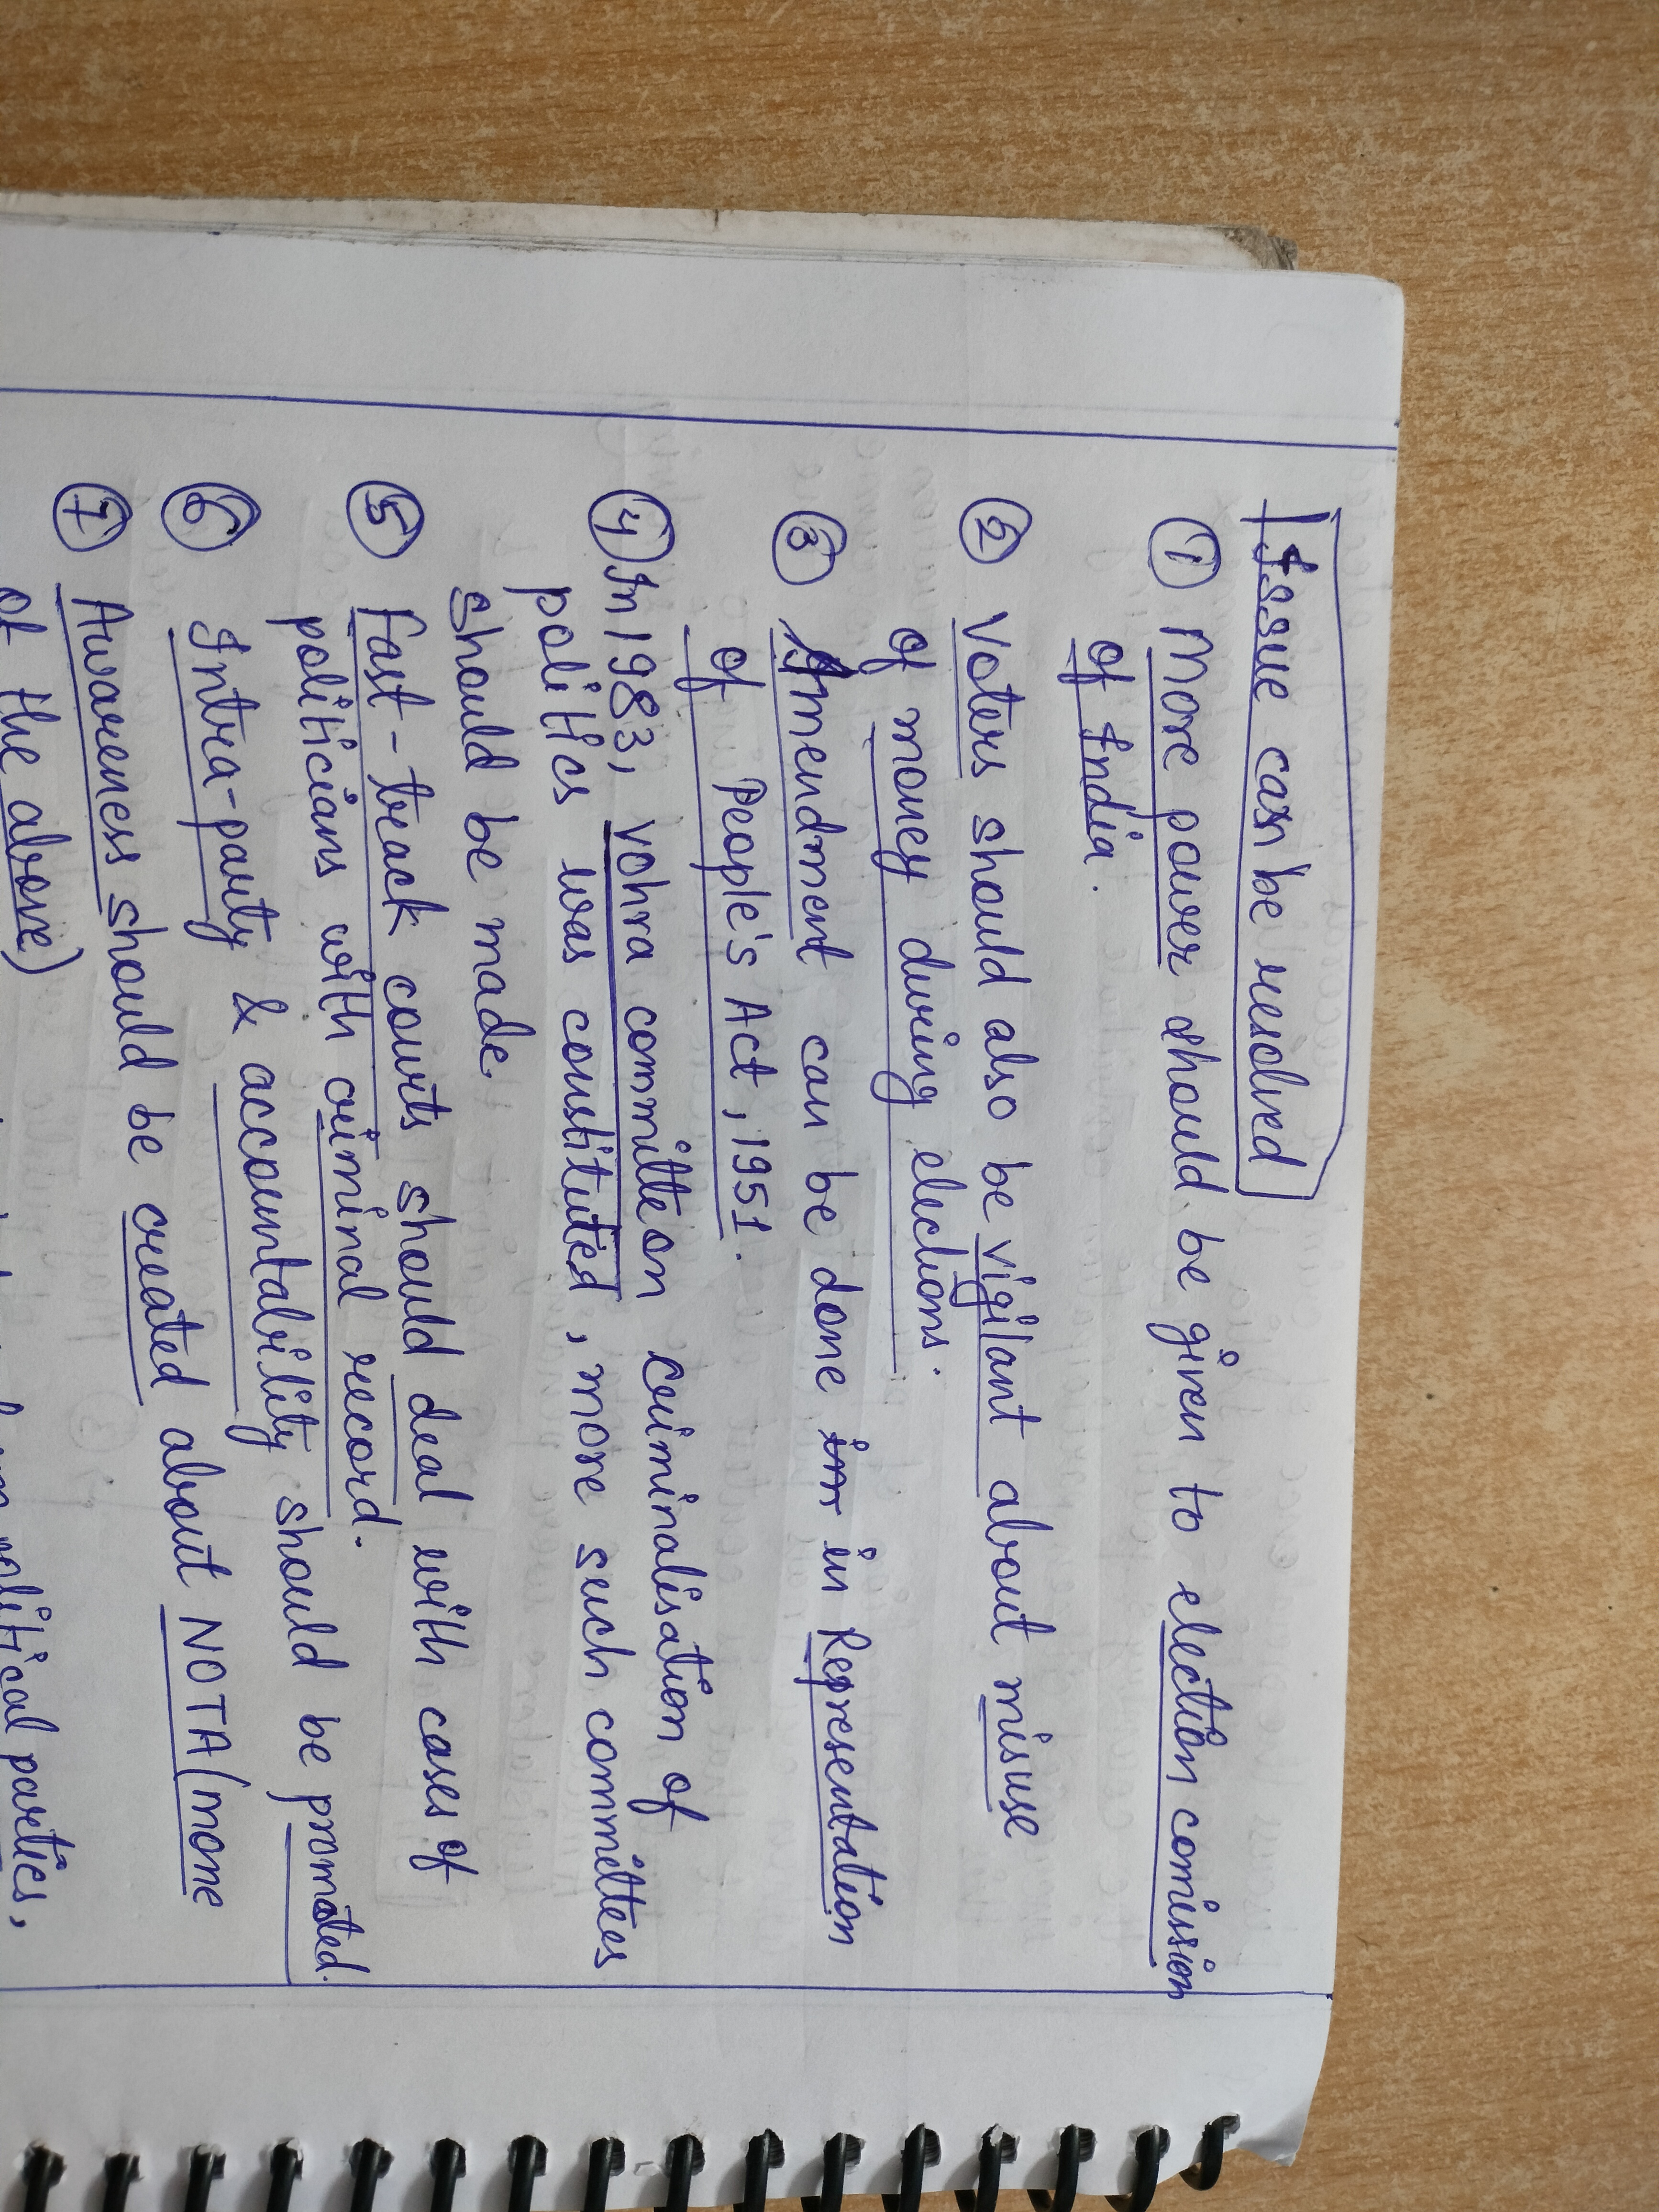 Issue can be resolved
① More power should be given to election comission
of India.
② Voters should also be vigilant about misuse
of money during elections.
③ Amendment can be done in in Representation
of People's Act, 1951.
④ In 1983, vohra committe on criminalisation of
politics was constituted, more such committees
should be made.
⑤ Fast-track courts should deal with cases of
politicians with criminal record.
⑥ Intra-party & accountability should be promoted.
⑦ Awareness should be created about NOTA (none
of the above)
political parties,